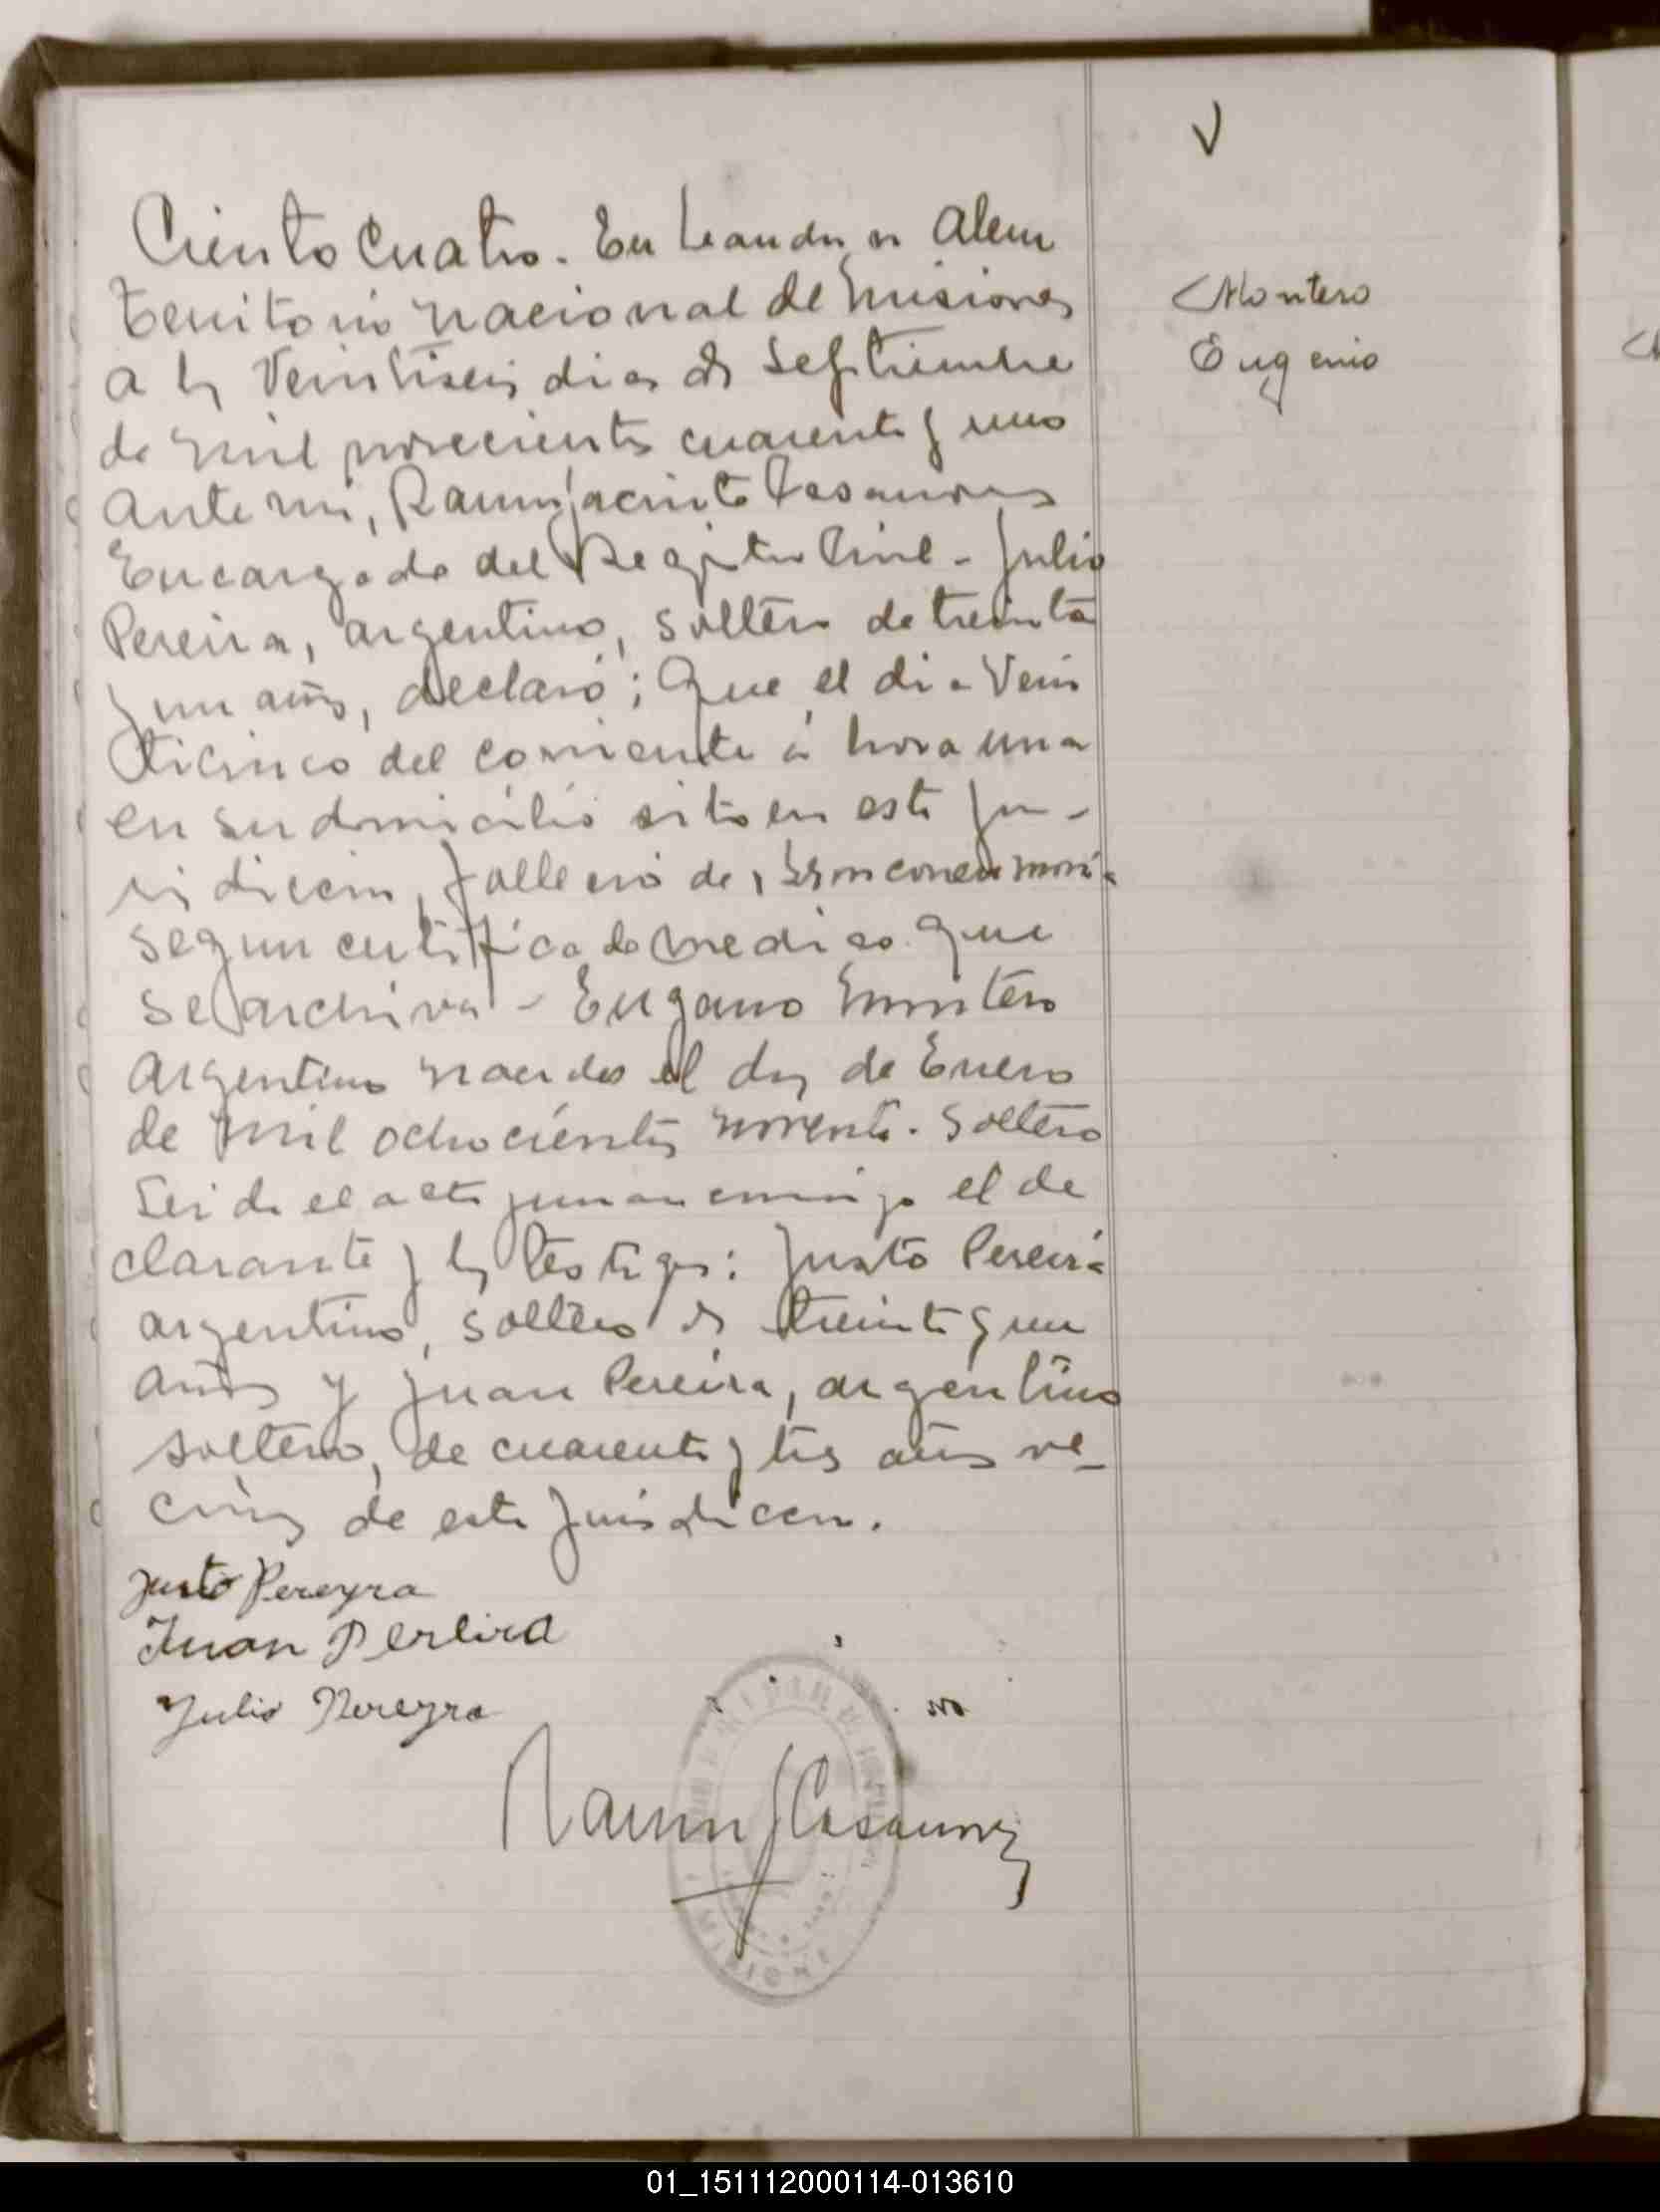 V
Ciento Cuatro. En Leandro N Alem
Montero
Eugenio
Territorio nacional de Misiones
a los Veintiseis dias de Septiembre
de mil novecientos cuarenta y uno
Ante mi, Ramon Jacinto Casanova
Encargado del Registro Civil - Julio
Pereira, argentino, soltero de treinta
y un años, declaró; Que el dia Vein
ticinco del corriente á hora una
en su domicilio sito en esta Ju-
ridiccion, fallecio de, Bronconeumonia
segun certificado medico que
se archiva - Eugenio Montero
Argentino nacido el dos de Enero
de mil ochocientos noventa. Soltero
Leida el acta firman conmigo el de
clarante y los testigos: Justo Pereira
argentino, soltero de treinta y un
años y Juan Pereira, argentino
soltero, de cuarenta y tres años ve-
cinos de esta Jurisdiccion.
Justo Pereyra
Juan Pereira
Julio Pereyra
Ramon J Casanova
01_151112000114-013610